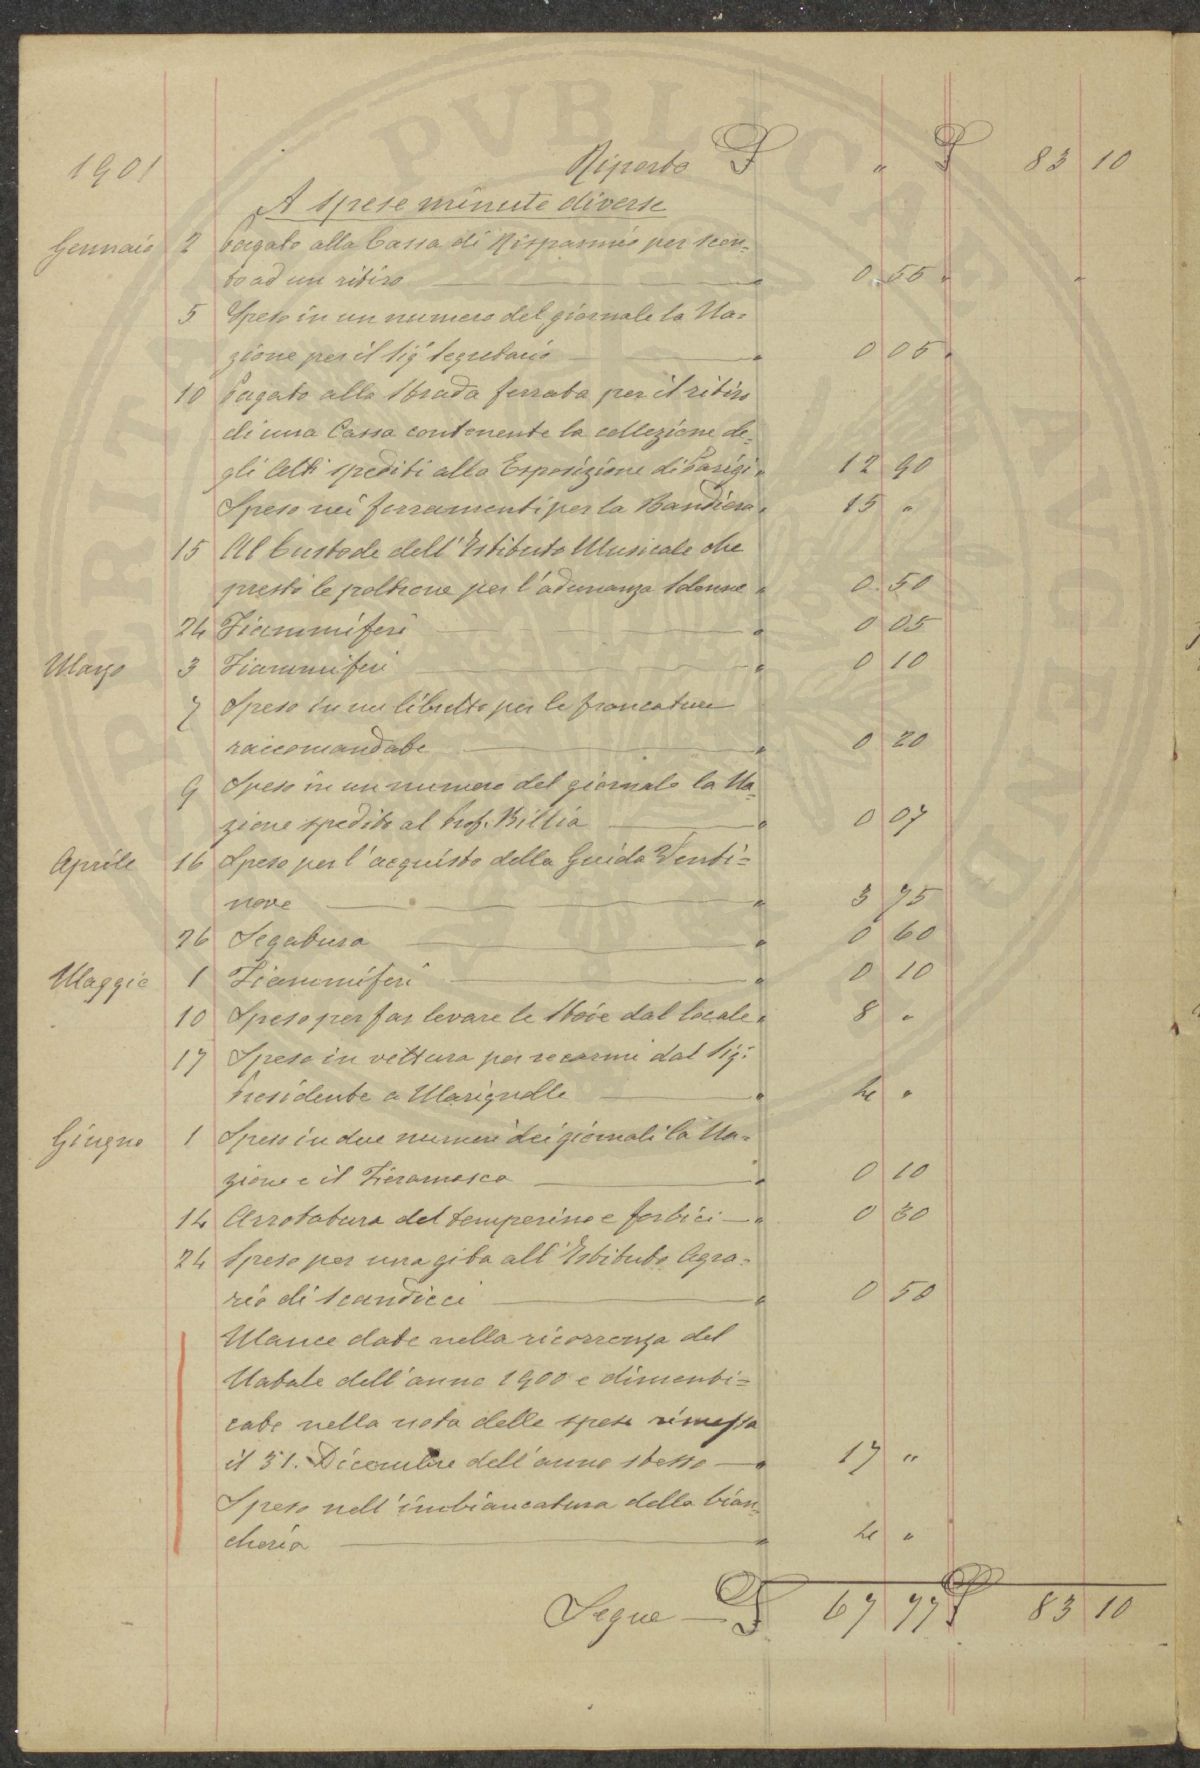 PVBLICAE
PROSPERITATIS
AVGMENTO
1901 Riporto £ " £ 83 10
A spese minute diverse
Gennaio 2 Pagato alla Cassa di Risparmio per scon=
to ad un ritiro " 0.55 " "
5 Speso in un numero del giornale la Na=
zione per il Sig. Segretario " 0 05 "
10 Pagato alla Strada ferrata per il ritiro
di una Cassa contenente la collezione de=
gli Atti spediti alla Esposizione di Parigi " 12 90
Speso nei ferramenti per la Bandiera " 15 "
15 Al Custode dell'Istituto Musicale che
prestò le poltrone per l'adunanza solenne " 0.50
24 Fiammiferi " 0 05
Marzo 3 Fiammiferi " 0 10
7 Speso in un libretto per le francature
raccomandate " 0 20
9 Speso in un numero del giornale la Na=
zione spedito al Prof. Billia " 0 07
Aprile 16 Speso per l'acquisto della Guida Venti=
nove " 3 75
26 Segatura " 0 60
Maggio 1 Fiammiferi " 0 10
10 Speso per far levare le Stoie dal locale " 8 "
17 Speso in vettura per recarmi dal Sig.
Presidente a Marignolle " 4 "
Giugno 1 Speso in due numeri dei giornali la Na=
zione e il Fieramosca " 0 10
14 Arrotatura del temperino e forbici " 0 30
24 Speso per una gita all'Istituto Agra=
rio di Scandicci " 0 50
Mance date nella ricorrenza del
Natale dell'anno 1900 e dimenti=
cate nella nota delle spese rimessa
il 31. Dicembre dell'anno stesso " 17 "
Speso nell'imbiancatura della bian=
cheria " 4 "
Segue £ 67 77 £ 83 10